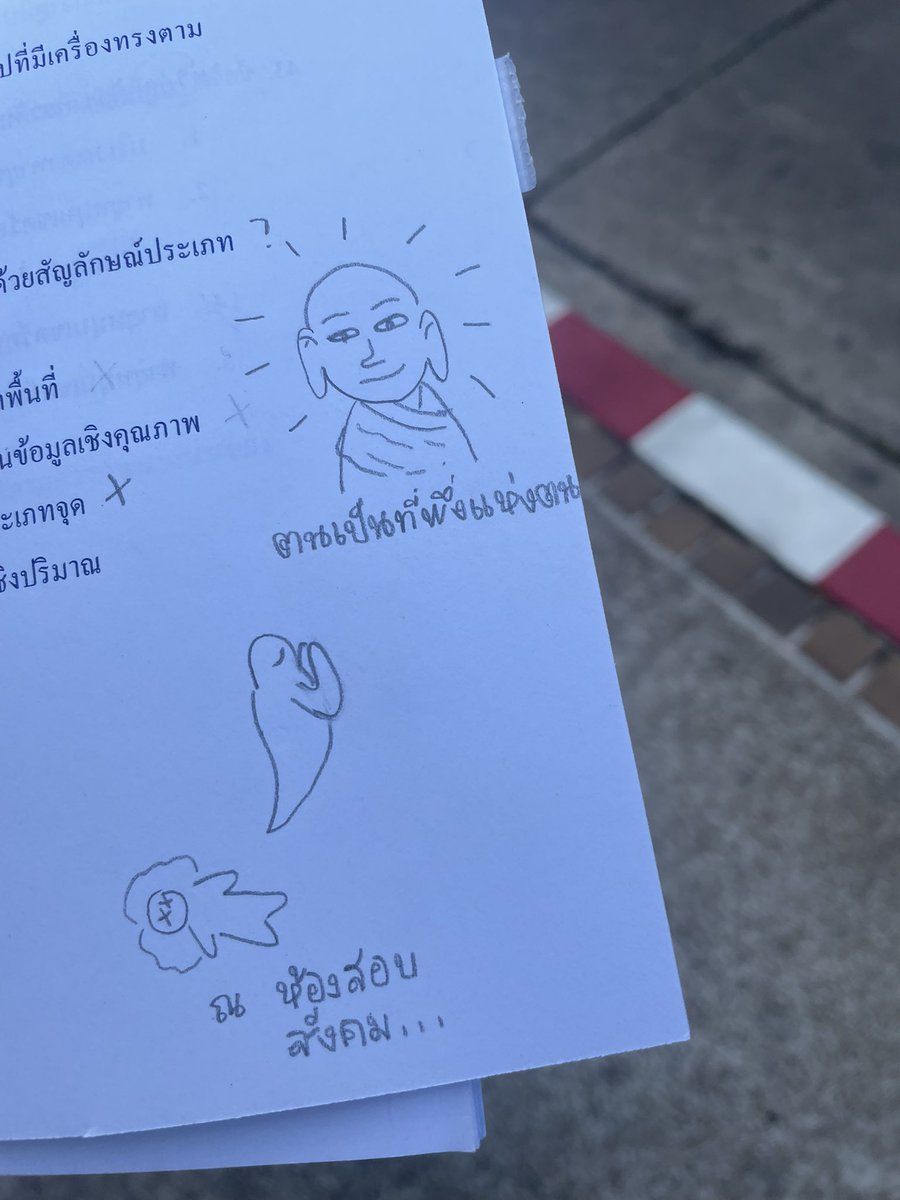 ปที่มีเครื่องทรงตาม
ด้วยสัญลักษณ์ประเภท ?
พื้นที่ X
นข้อมูลเชิงคุณภาพ X
ะเภทจุด X
ชิงปริมาณ
ตนเป็นที่พึ่งแห่งตน
ณ ห้องสอบ
สังคม...